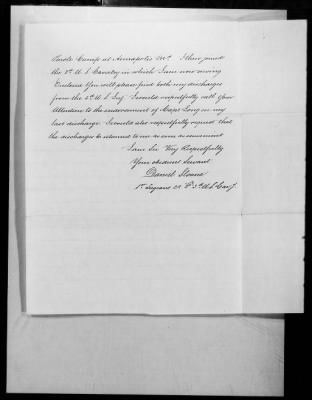 Parole Camp at Annapolis Md. I then joined
the 5th U S Cavalry in which I am now serving
Enclosed You will please find both my discharges
from the 2d U S Inf I would respectfully call your
Attention to the endorsement of Capt Long on my
last discharge I would also respectfully request that
the discharges be returned to me as soon as convenient
I am Sir Very Respectfully
Your obedient Servant
Daniel Sloane
1st Sergeant Co 5th U.S. Cavy